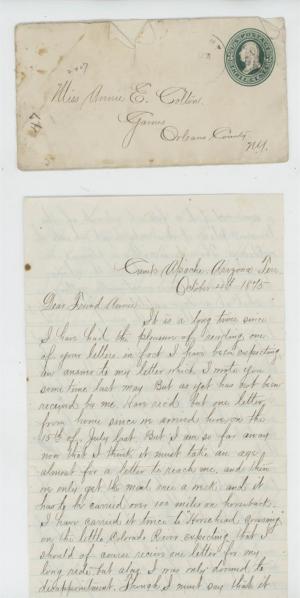 2407
Miss Annie E. Cotton
Gaines
Orleans County
N.Y.
47
Camp Apache. Arizona Terr.
October 1875
Dear Friend Annie
It is a long time since
I have had the pleasure of reading one
of your letters. in fact I have been expecting
an answer to my letter which I wrote you
some time last May. But as yet has not been
received by me. Have recd. but one letter
from home since we arrived here on the
15th of July last. But I am so far away
now that I think it must take an age
almost for a letter to reach me. and then
we only get the mail once a week and it
has to be carried over 100 miles on horseback.
I have carried it twice to Horsehead crossing
on the Little Colorado River expecting that I
should of course receive one letter for my
long ride. but alas I was only doomed to
disappointment. Though I must say that it